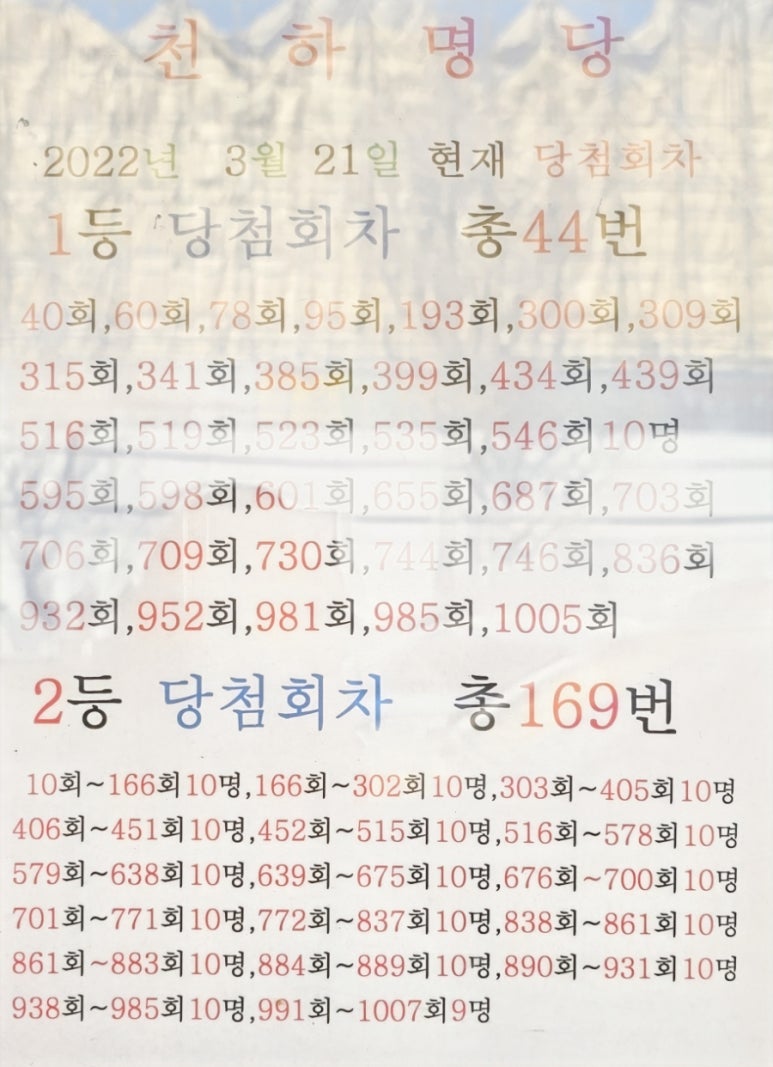 천 하 명 당
2022년 3월 21일 현재 당첨회차
1등 당첨회차 총44번
40회,60회,78회,95회,193회,300회,309회
315회,341회,385회,399회,434회,439회
516회,519회,523회,535회,546회10명
595회,598회,601회,655회,687회,703회
706회,709회,730회,744회,746회,836회
932회,952회,981회,985회,1005회
2등 당첨회차 총169번
10회~166회10명,166회~302회10명,303회~405회10명
406회~451회10명,452회~515회10명,516회~578회10명
579회~638회10명,639회~675회10명,676회~700회10명
701회~771회10명,772회~837회10명,838회~861회10명
861회~883회10명,884회~889회10명,890회~931회10명
938회~985회10명,991회~1007회9명